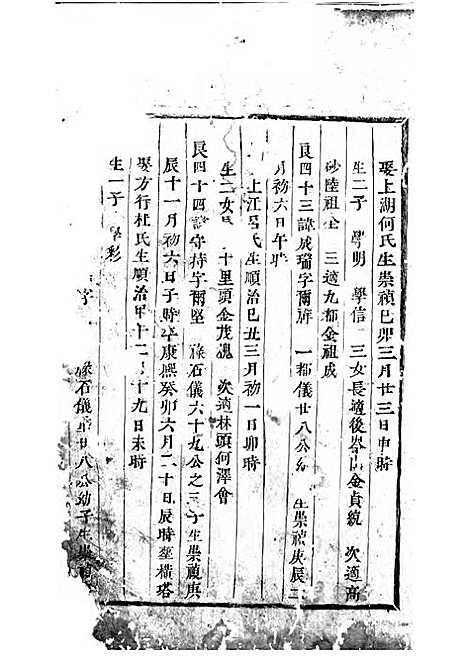 娶上湖何氏生崇禎己卯三月廿三日申時
生二子 學明 學信 三女長適後岑山金貞統 次適高
砂陸祖 三適九都金祖成
良四十三諱成瑞字爾 一都儀廿八公 生崇禎庚辰二
月初六日午時
上江 氏生順治己丑三月初一日卯時
生二女 十里頭金茂 次適林頭何澤會
良四十四諱守持字爾堅 祿石儀六十九公之三子生崇禎庚
辰十一月初六日子時卒康熙癸卯六月二十日辰時塟橫塔
娶方行杜氏生順治甲 十二 十九日未時
生一子 學彩
字
石儀 廿八公幼子生崇禎